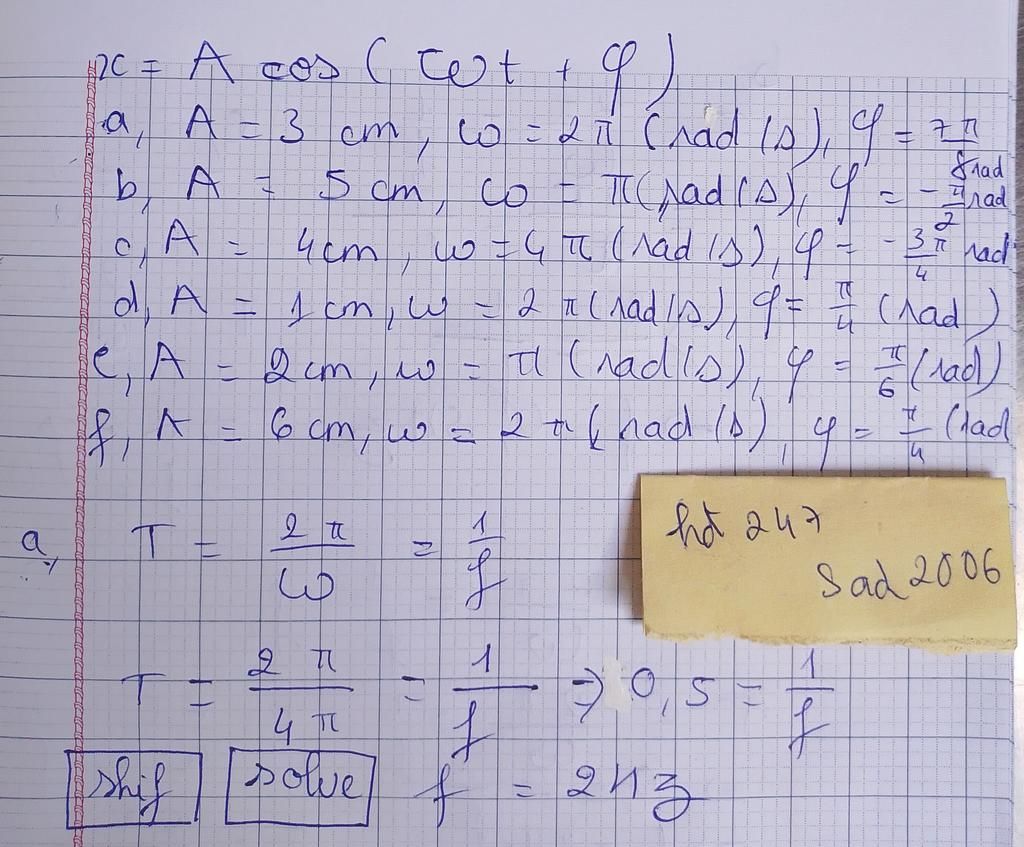 x = A cos ( ωt + φ )
a, A = 3 cm , ω = 2π (rad/s), φ = 7π/8 rad
b, A = 5 cm, ω = π(rad/s), φ = -π/2 rad
c, A = 4cm , ω = 4π (rad/s), φ = -3π/4 rad
d, A = 1cm , ω = 2π(rad/s), φ = π/4 (rad)
e, A = 2cm , ω = π (rad/s), φ = π/6 (rad)
f, A = 6 cm, ω = 2π( rad/s), φ = π/4 (rad
a, T = 2π/ω = 1/f
hot 247
Sad 2006
T = 2π/4π = 1/f => 0,5 = 1/f
shif solve f = 2Hz